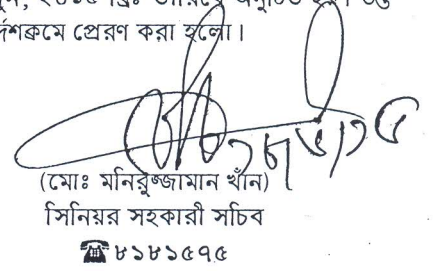 র্দেশক্রমে প্রেরণ করা হলো।
(মোঃ মনিরুজ্জামান খাঁন)
সিনিয়র সহকারী সচিব
☎৮১৮১৫৭৫